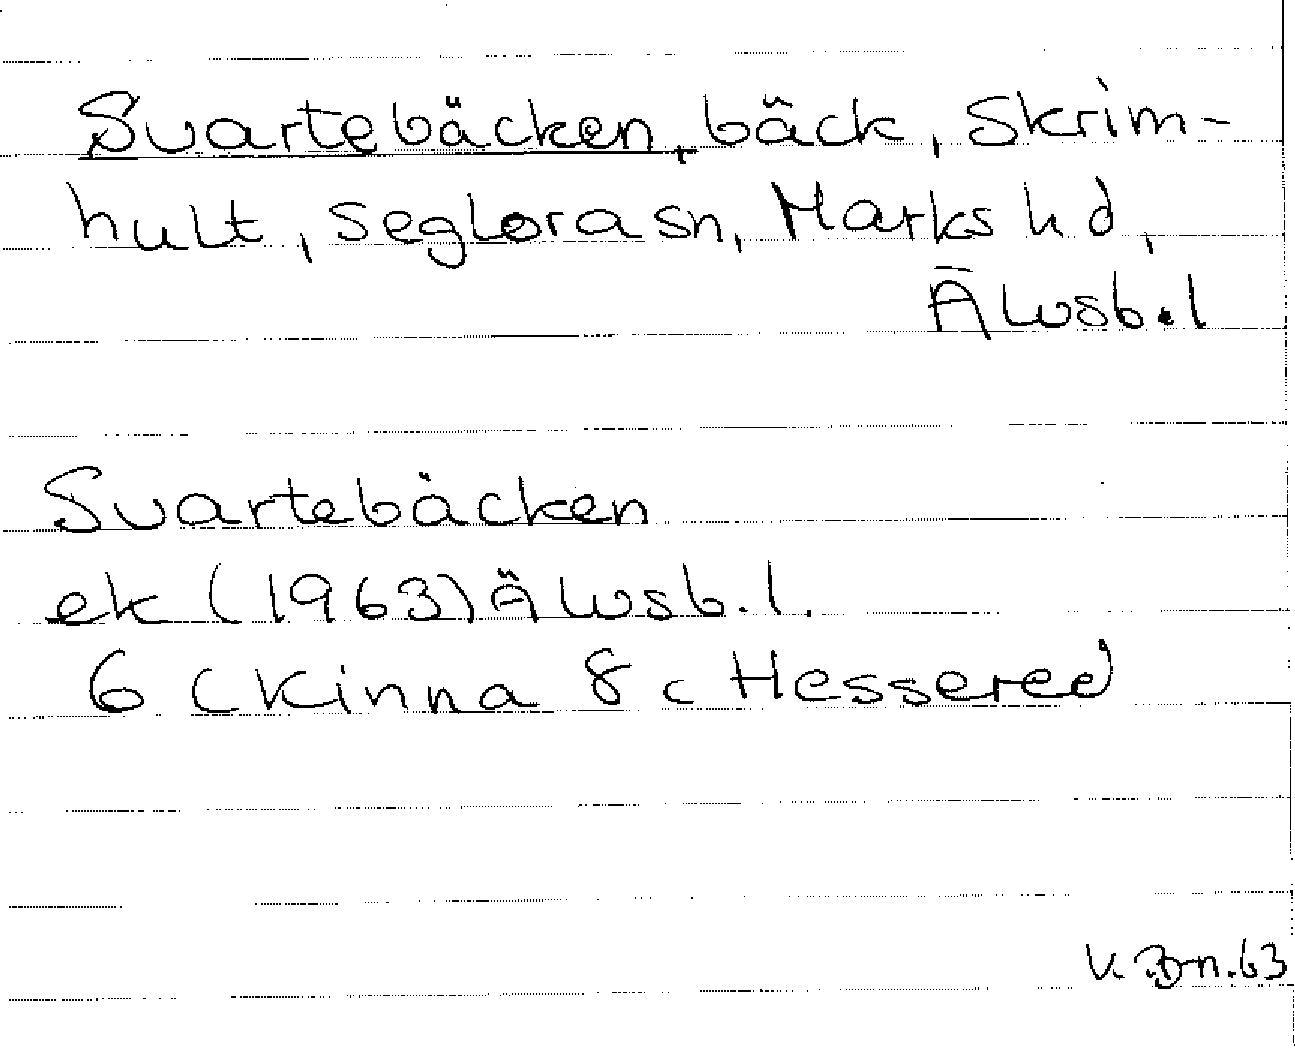 Svartebäcken, bäck, Skrim-
hult, Seglora sn, Marks hd,
Älvsb.l
Svartebäcken
ek (1963) Älvsb.l.
6 C Kinna 8 c Hessered
63